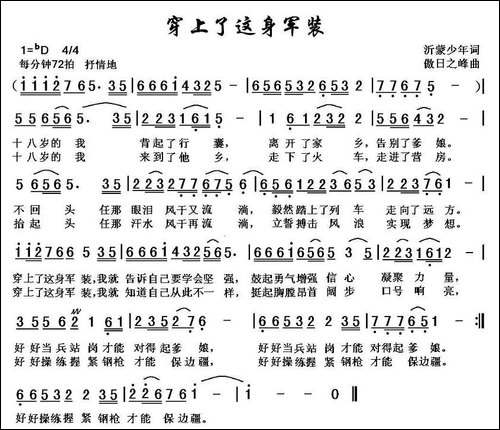 穿上了这身军装
1=ᵇD 4/4 沂蒙少年词
每分钟72拍 抒情地 傲日之峰曲
(i i i 2 7 6 7 6 5. 3 5 | 6 6 6 i 4 3 2 5 - | 6 5 6 5 3 2 6 5 3 2 | 7 7 6 7 5 - ) |
5 5 6 5 6 5 - | 5 5 6 5 3 2 1 - | 1 6 1 2 3 3 - | 5 6 5 3 2 2 - |
十八岁的 我 背起了行 囊, 离开了家 乡, 告别了爹 娘。
十八岁的 我 来到了他 乡, 走下了火 车, 走进了营 房。
5 6 5 6 5. 3 5 | 2 2 3 2 7 7 6 7 6 5 | 6 5 6 1 2 2 3 1 2 3 | 2 2 3 7 6 1 - |
不回 头 任那 眼泪 风干又流 淌, 毅然踏上了列 车 走向了远 方。
抬起 头 任那 汗水 风干再流 淌, 立誓搏击 风 浪 实现 梦 想。
i i i 2 7 6 6 5 3 5 | 6 6 6 i 4 3 2 3 5 - | 6 5 6 5 3 5 3 2 1 | 2 2 3 1 6 1 2 - |
穿上了这身军 装,我就 告诉自己要学会坚 强, 鼓起勇气增强 信心 凝聚 力 量,
穿上了这身军 装,我就 知道自己从此不一 样, 挺起胸膛昂首 阔步 口号 响 亮,
3 5 5 6 2 1 6 1 | 2 3 5 2 7 6 - | 6 6 5 3 2 3 5 | 7 7 7 6 5 1 - :|
好 好当兵站 岗 才能 对得起爹 娘, 好好当兵站 岗 才能 对得起爹 娘。
好 好操练握 紧 钢枪 才能 保边疆, 好好操练握 紧 钢枪 才能 保边疆。
6 6 5 3 2 3 . 3 5 | 2 2 6 7 6 1 | 1 - - 0 ‖
好好操练握 紧 钢枪 才能 保边疆。